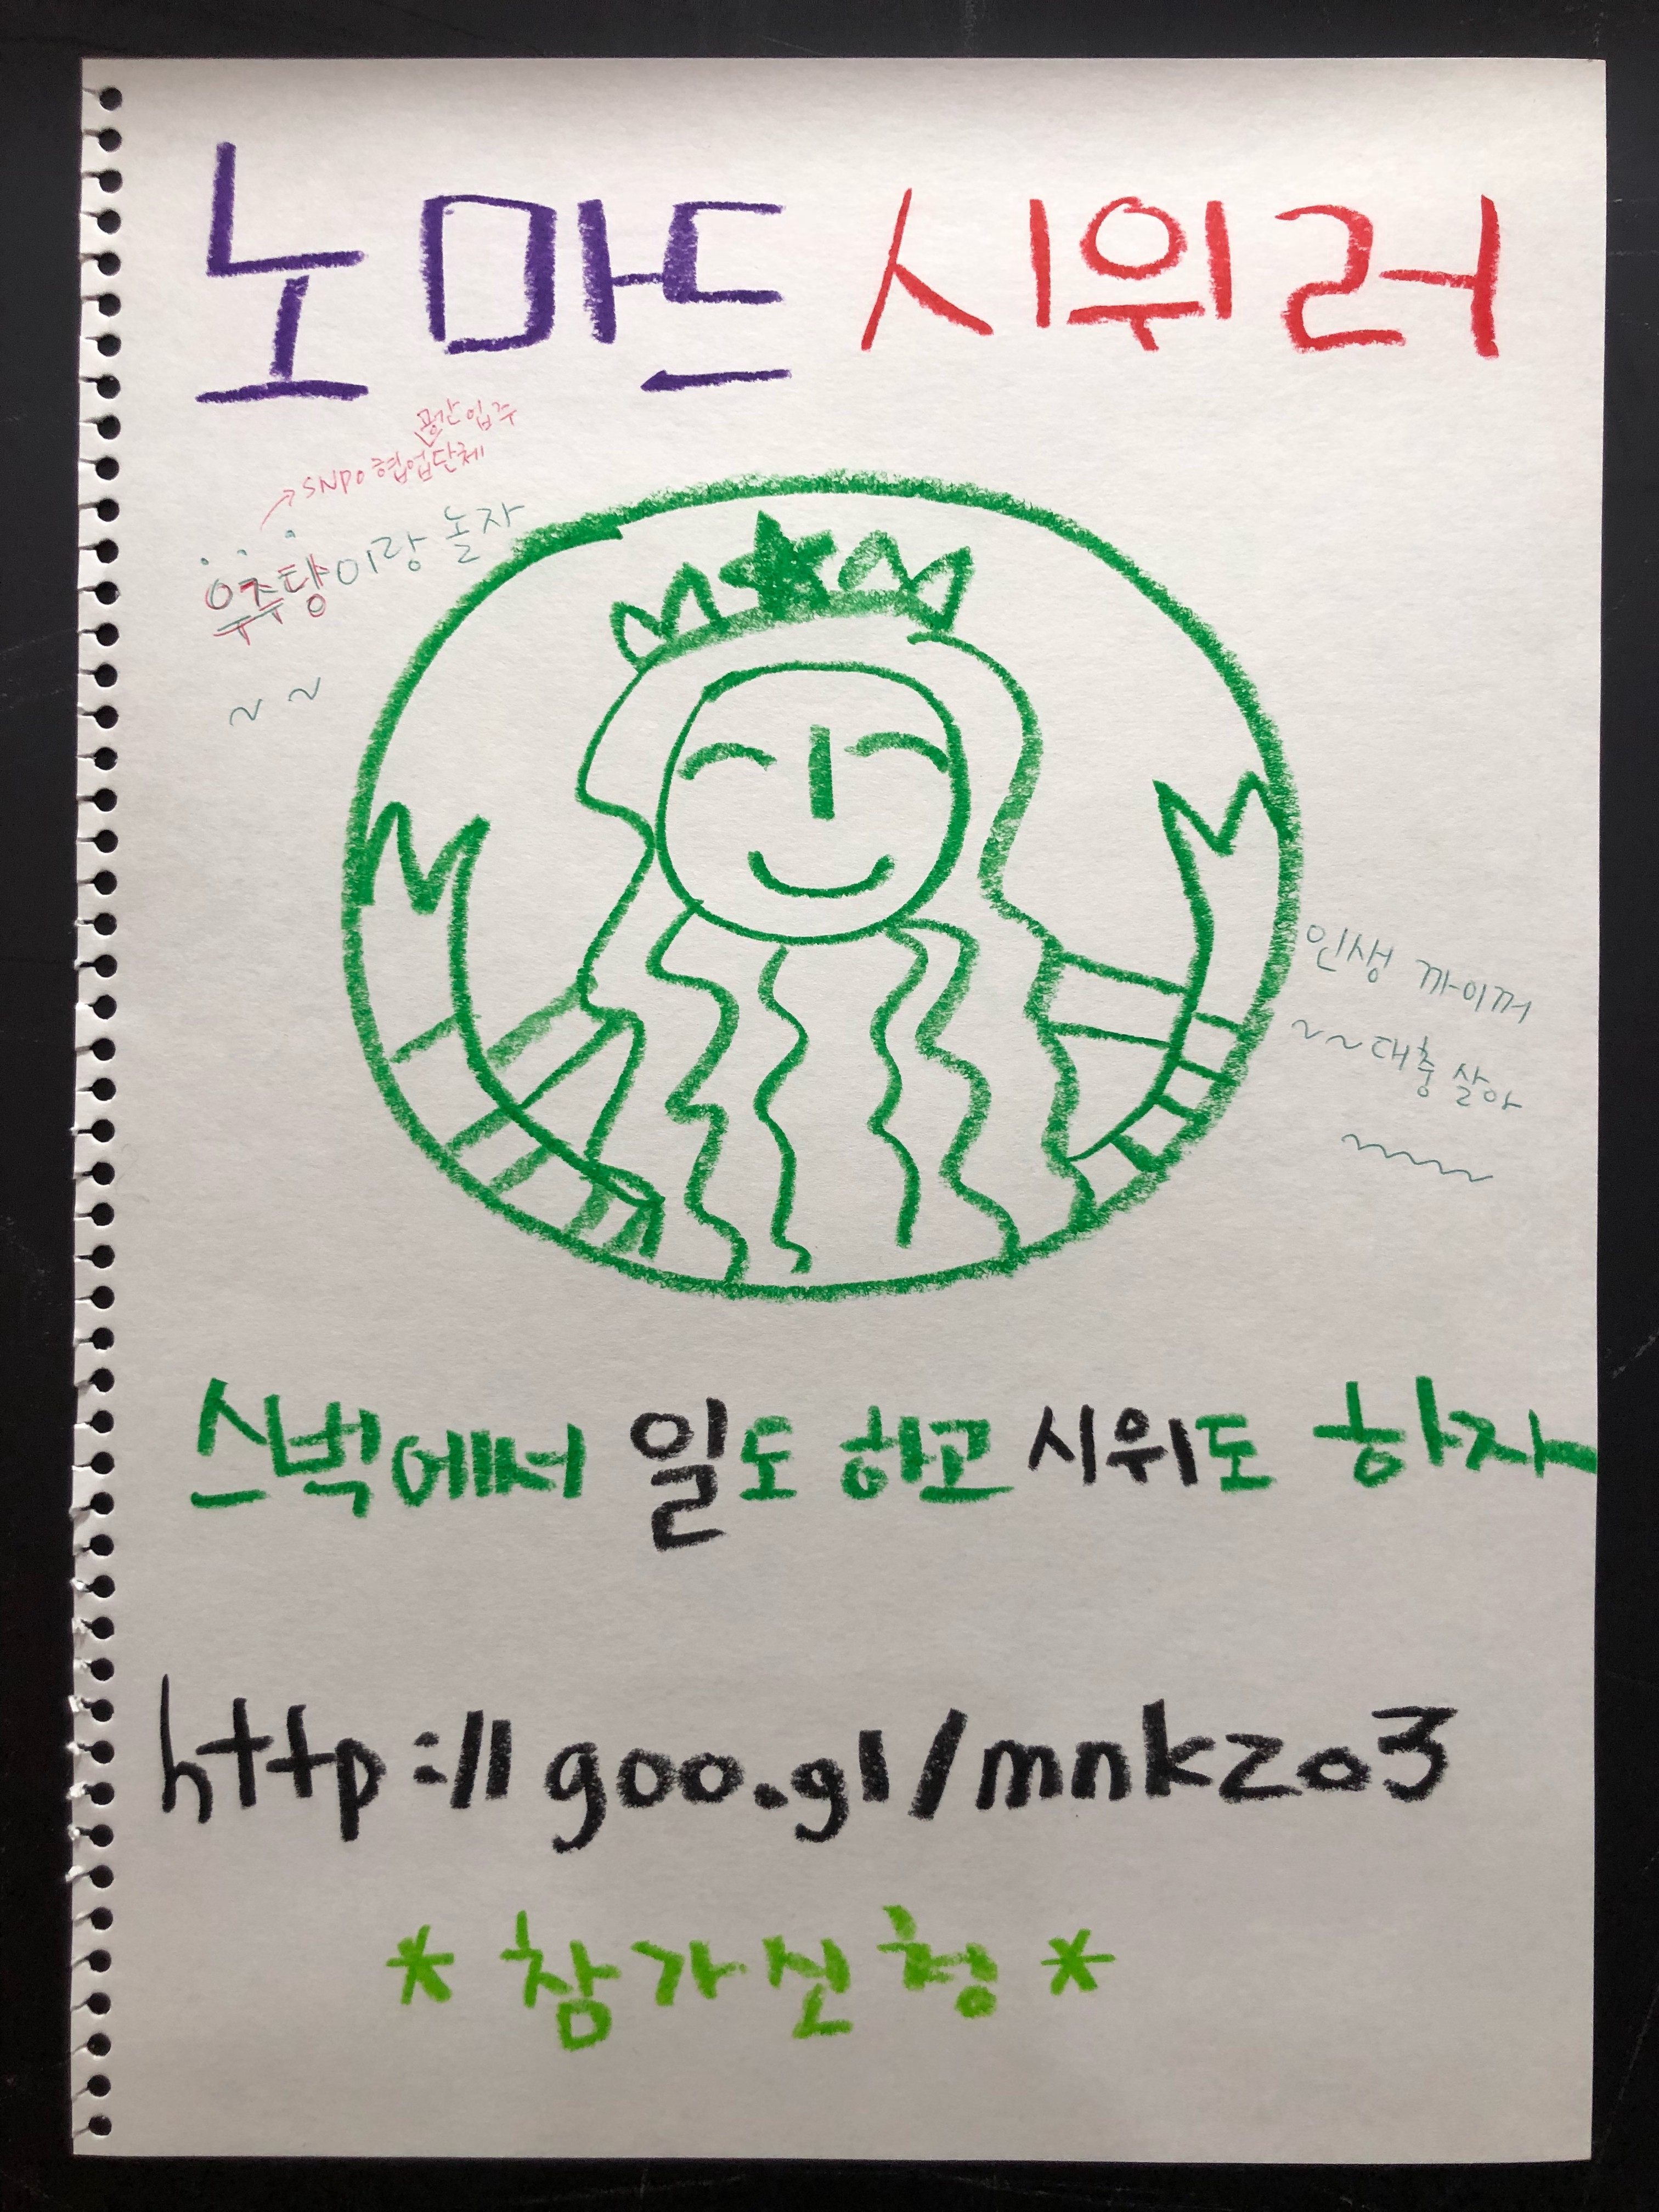 노마드 시위러
공간입주
→ SNPO 협업단체
우주당이랑 놀자
~ ~
인생 까이꺼
~~대충 살아
~~~~
스벅에서 일도 하고 시위도 하자
http://goo.gl/mnkzo3
* 참가신청 *